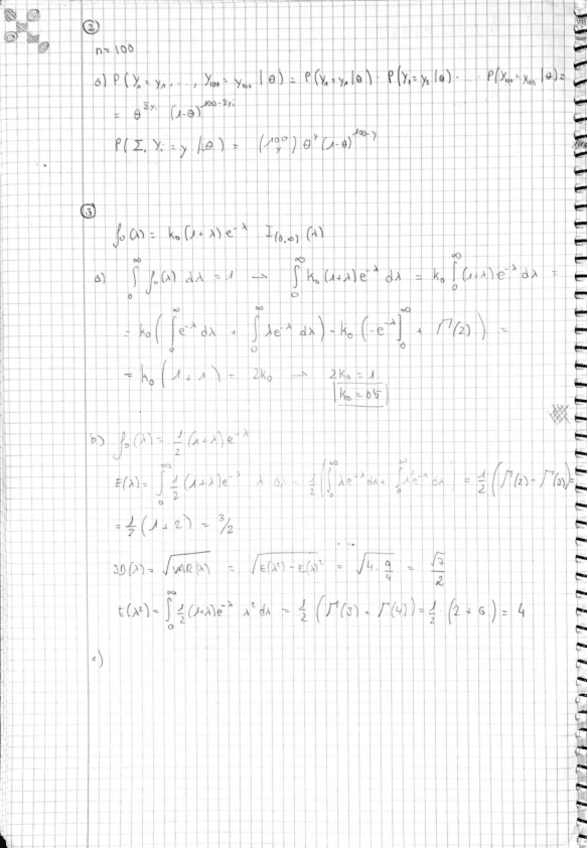 ②
n = 100
a) P(Y₁ = y₁, ..., Y₁₀₀ = y₁₀₀ | θ) = P(Y₁ = y₁ | θ) · P(Y₂ = y₂ | θ) · ... P(Y₁₀₀ = y₁₀₀ | θ) =
= θ^{Σyᵢ} (1-θ)^{100-Σyᵢ}
P(Σᵢ Yᵢ = y | θ) = (100 y) θ^y (1-θ)^{100-y}
③
f₀(λ) = k₀ (1+λ) e^{-λ} I_{(0,∞)} (λ)
a) ∫₀^∞ f₀(λ) dλ = 1 → ∫₀^∞ k₀ (1+λ) e^{-λ} dλ = k₀ ∫₀^∞ (1+λ) e^{-λ} dλ =
= k₀ ( ∫₀^∞ e^{-λ} dλ + ∫₀^∞ λe^{-λ} dλ ) = k₀ ( -e^{-λ} ]₀^∞ + Γ(2) ) =
= k₀ (1+1) = 2k₀ → 2k₀ = 1
k₀ = 0.5
b) f₀(λ) = 1/2 (1+λ) e^{-λ}
E(λ) = ∫₀^∞ 1/2 (1+λ) e^{-λ} λ dλ = 1/2 ( ∫₀^∞ λe^{-λ} dλ + ∫₀^∞ λ²e^{-λ} dλ ) = 1/2 ( Γ(2) + Γ(3) ) =
= 1/2 (1+2) = 3/2
SD(λ) = √VAR(λ) = √E(λ²) - E(λ)² = ... = √4 - 9/4 = √7/2
E(λ²) = ∫₀^∞ 1/2 (1+λ) e^{-λ} λ² dλ = 1/2 ( Γ(3) + Γ(4) ) = 1/2 (2+6) = 4
c)